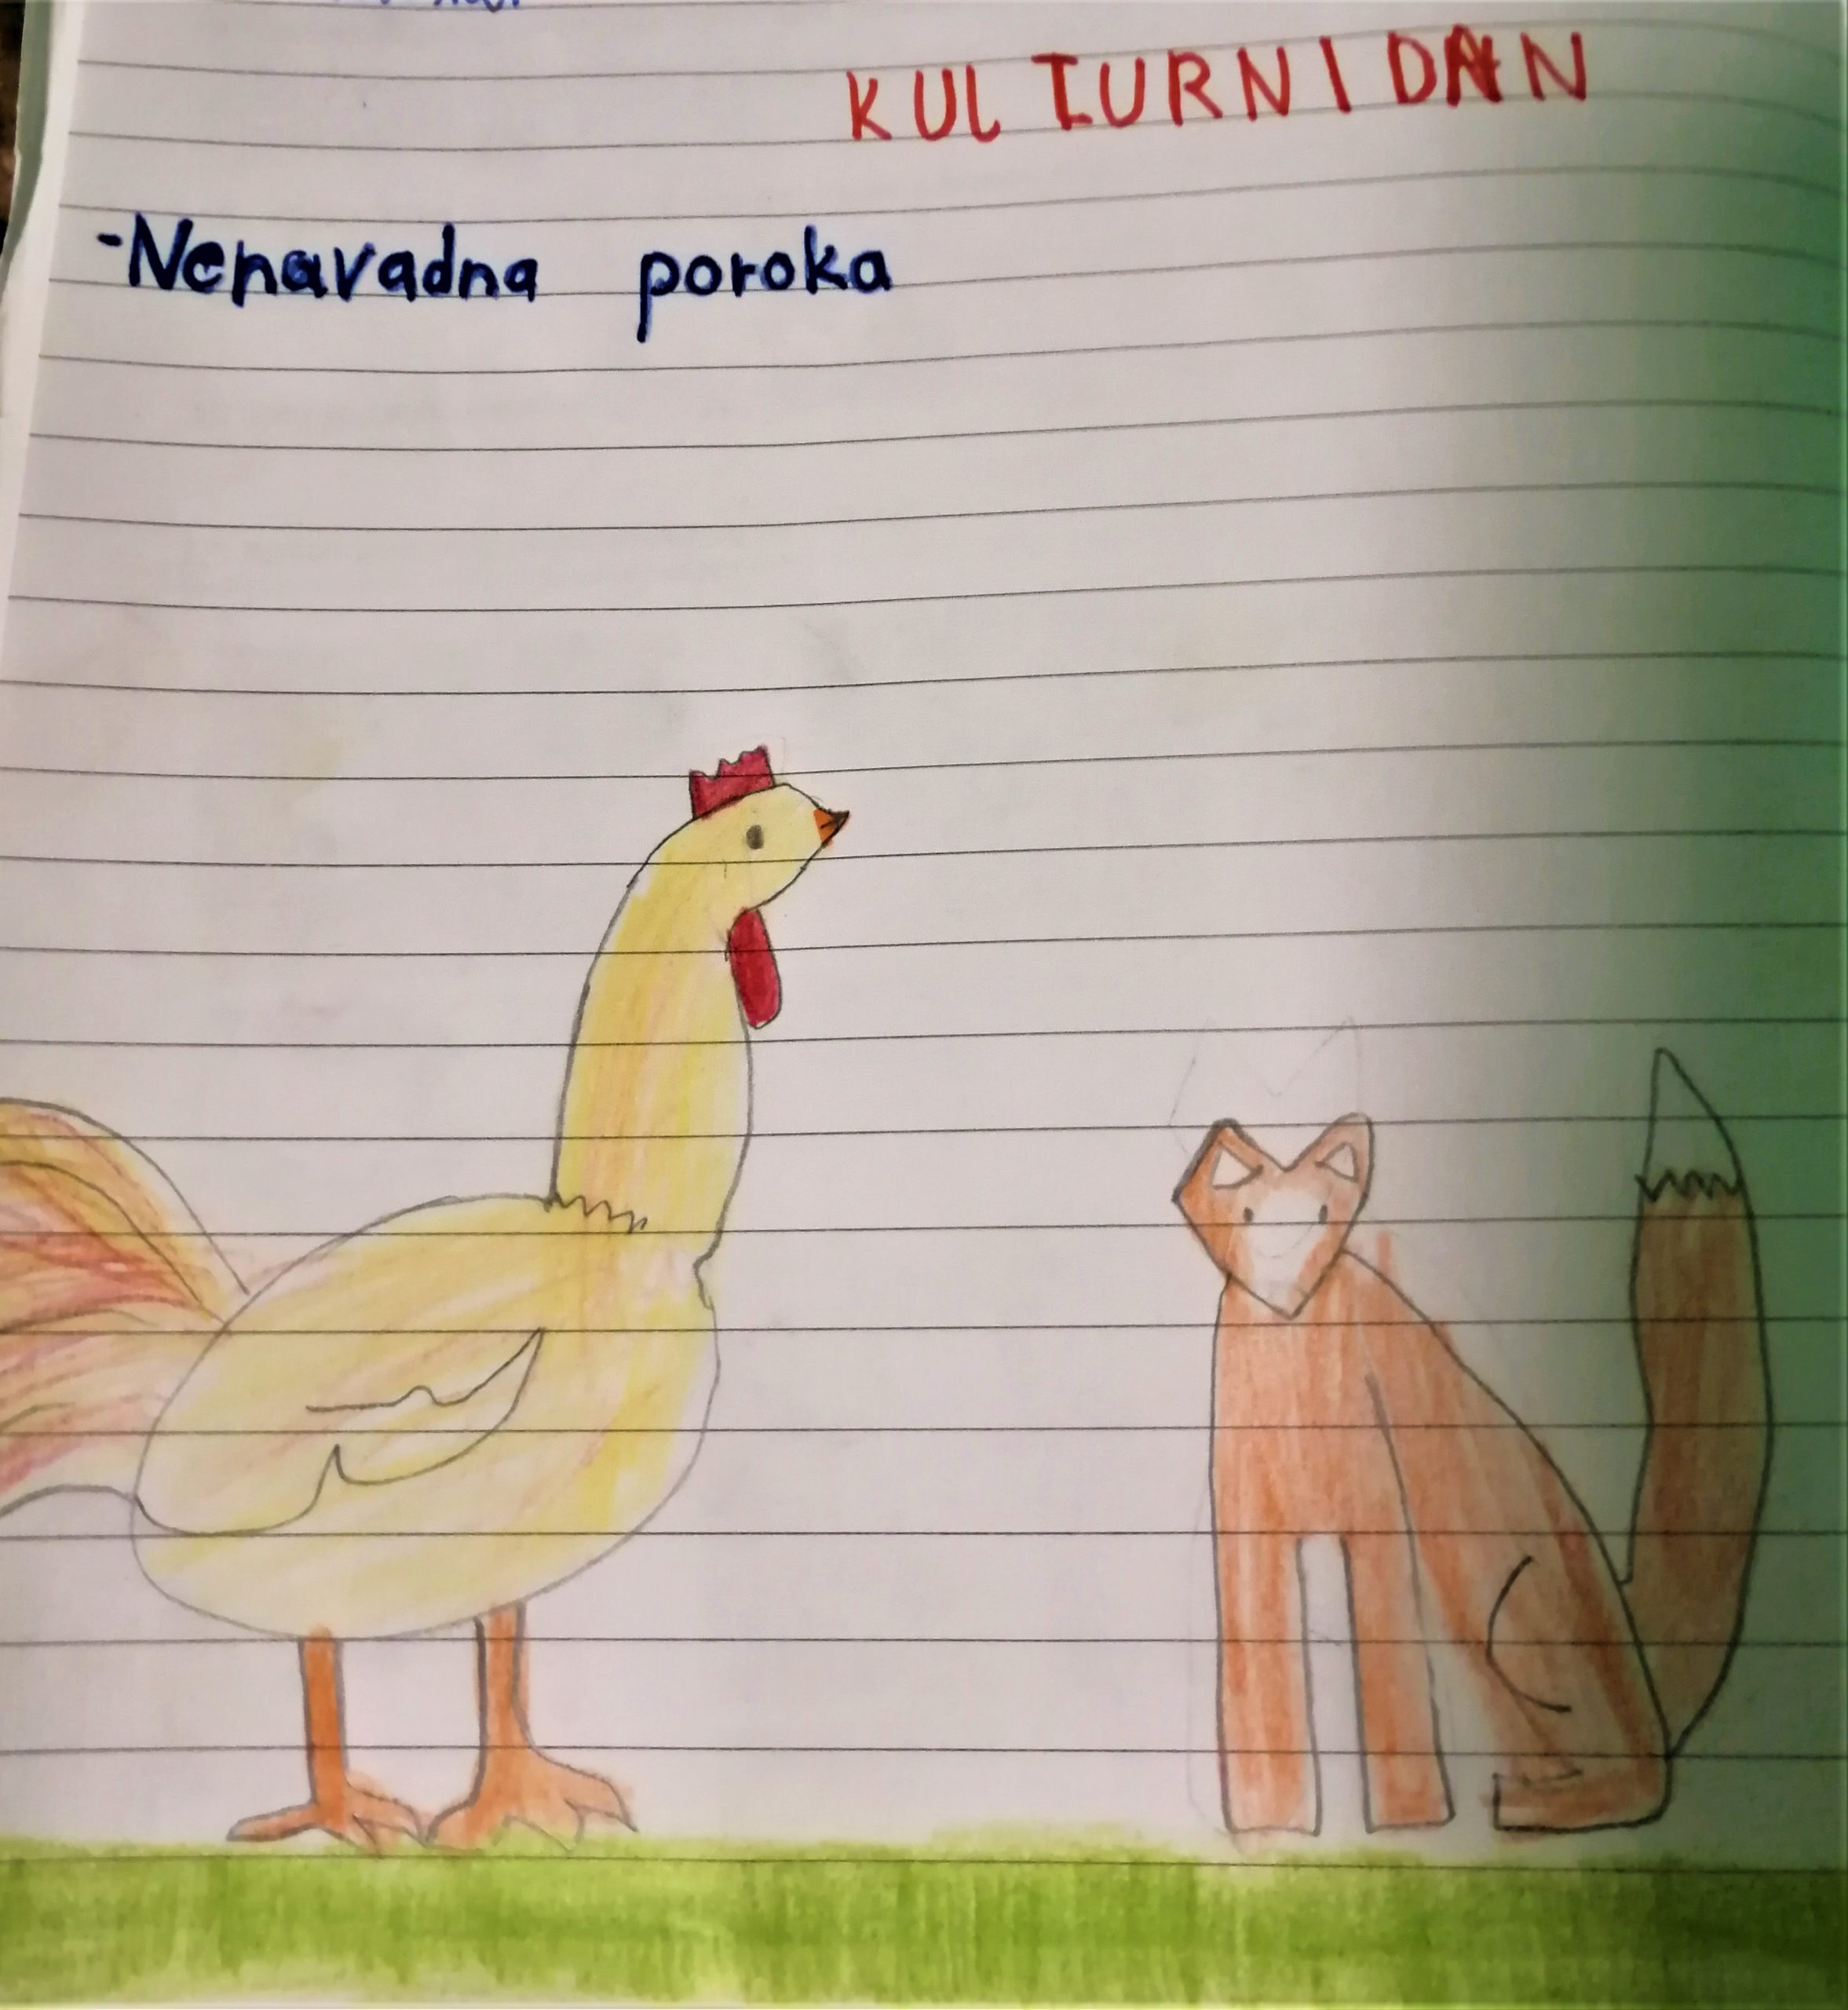 KULTURNI DAN
-Nenavadna poroka